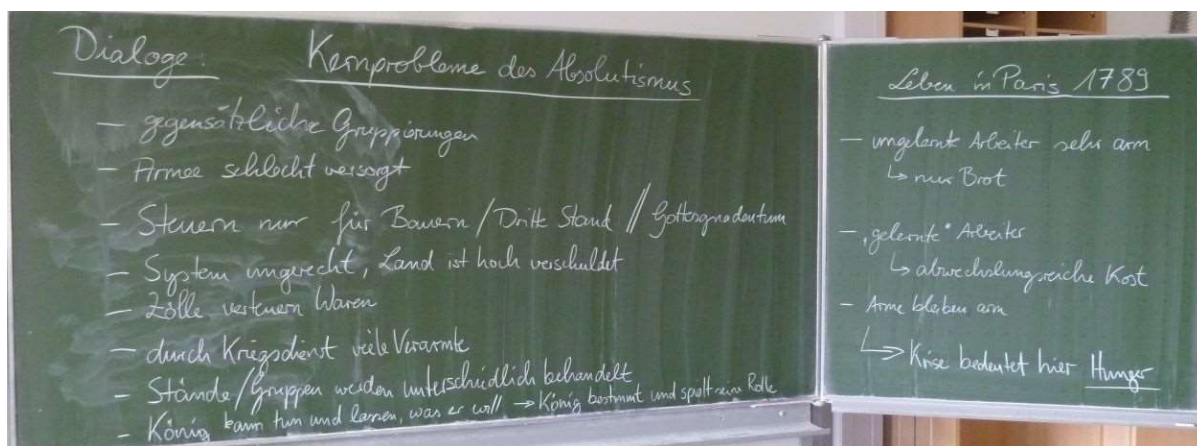 Dialoge: Kernprobleme des Absolutismus
- gegensätzliche Gruppierungen
- Armee schlecht versorgt
- Steuern nur für Bauern / Dritte Stand // Gottesgnadentum
- System ungerecht, Land ist hoch verschuldet
- Zölle verteuern Waren
- durch Kriegsdienst viele Verarmte
- Stände/Gruppen werden unterschiedlich behandelt
- König kann tun und lassen, was er will → König bestimmt und spielt seine Rolle
Leben in Paris 1789
- ungelernte Arbeiter sehr arm
↳ nur Brot
- „gelernte" Arbeiter
↳ abwechslungsreiche Kost
- Arme bleiben arm
↳ Krise bedeutet hier Hunger